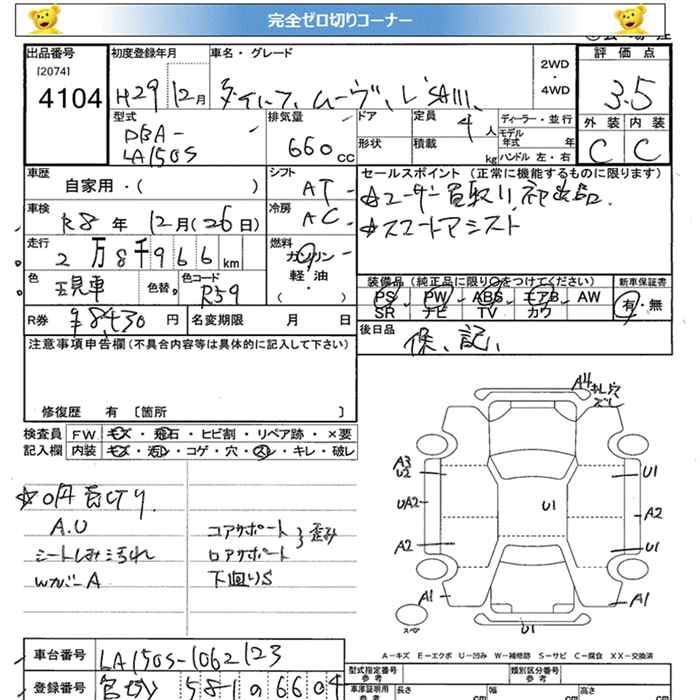 完全ゼロ切りコーナー
出品番号 初度登録年月 車名・グレード 2WD・4WD 評価点
[2074]
4104 H29 12月 ダイハツ ムーヴ L SAⅢ 3.5
型式 排気量 ドア 定員 4人 ディーラー・並行 外装 内装
DBA-
LA150S 660cc 形状 積載 kg モデル年式 年 ハンドル 左・右 C C
車歴 自家用・( ) シフト AT セールスポイント(正常に機能するものに限ります)
☆ユーザー買取り初出品
車検 R8年 12月(26日) 冷房 AC
☆スマートアシスト
走行 2万8千966km 燃料 ガソリン 軽・油 ( )
色 色替 色コード R59 装備品(純正品に限り○をつけてください) 新車保証書
PS PW ABS エアB AW 有・無
SR ナビ TV カワ
R券 ¥8,430円 名変期限 月 日 後日品 保、記、
注意事項申告欄(不具合内容等は具体的に記入して下さい)
修復歴 有 [箇所 ]
検査員 FW キズ・飛石・ヒビ割・リペア跡・×要
記入欄 内装 キズ・汚レ・コゲ・穴・スレ・キレ・破レ
A4 キレ穴
ズレ
A3
U2 U1
UA2 U1 A2
A2 U1
A1 A1
スペア U1
☆0円
A.U コアサポート 歪み
シートしみ汚れ ロアサポート
Wカバー A 下回りS
A-キズ E-エクボ U-凹み W-補修跡 S-サビ C-腐食 XX-交換済
車台番号 LA150S-1062123
型式指定番号 参考 類別区分番号 参考
登録番号 581 6604
車庫証明用 参考 長さ cm 幅 cm 高さ cm